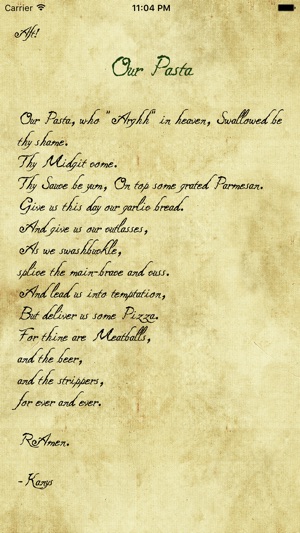 Carrier 11:04 PM
Aft!
Our Pasta
Our Pasta, who "Arghh" in heaven, Swallowed be
thy shame.
Thy Midgit come.
Thy Sauce be yum, On top some grated Parmesan.
Give us this day our garlic bread.
And give us our cutlasses,
As we swashbuckle,
splice the main-brace and cuss.
And lead us into temptation,
But deliver us some Pizza.
For thine are Meatballs,
and the beer,
and the strippers,
for ever and ever.
RAmen.
- Kanys